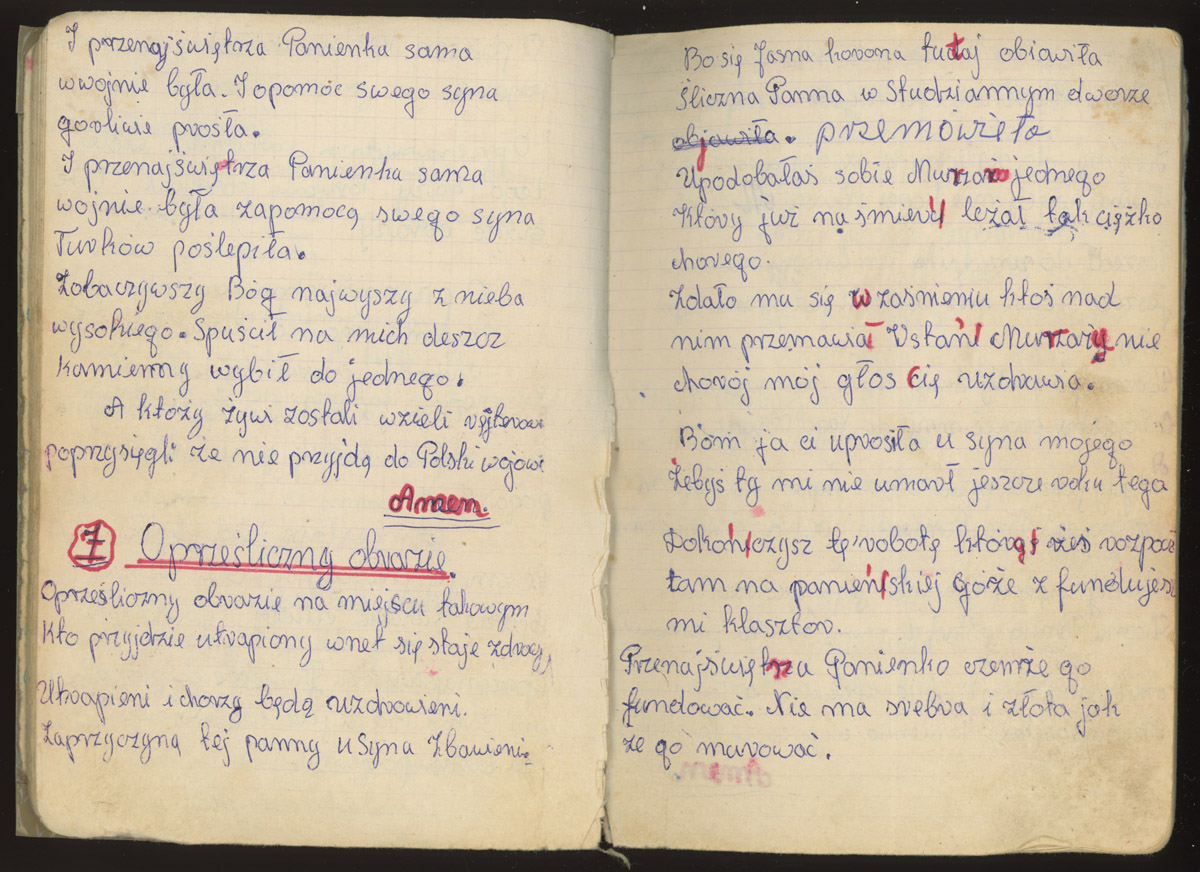 I przenajświętrza Panienka sama
wwojnie była. I opomóc swego syna
gorliwie prosła.
I przenajświętrza Panienka sama
wojnie była zapomocą swego syna
Turków poślepiła.
Zobaczywszy Bóg najwyszy z nieba
wysokiego. Spuścił na mich deszcz
Kamienny wybił do jednego.
A któży żywi zostali wzieli
poprzysięgli że nie przyjdą do Polski wojowi
Amen.
7 Oprześliczny obrazie.
Oprześliczny obrazie na miejscu takowym
Kto przyjdzie utrapiony wnet się staje zdrowy
Utrapieni i chorzy będą uzdrowieni.
Zaprzyczyną tej panny u Syna Zbawieni.
Bo się Jasna korona tutaj obiawiła
Śliczna Panna w Studziannym dworze
objawiła. przemówiła
Upodobałaś sobie Murzaż jednego
Który już na śmierć leżał tak ciężko
chorego.
Zdało mu się w zaśnieniu ktoś nad
nim przemawiał Vstań Murzarzy nie
choróJ mój głos cię uzdrawia.
Bom ja ci uprosiła u syna mojego
Żebyś ty mi nie umarł jeszcze roku tega
Dokończysz tę robotę któryś żeś rozpoczą
tam na panieńskiej Góże z fundujesz
mi klasztor.
Przenajświętrzu Panienko czemże go
fundować. Nie ma srebra i złota jak
że go murować.